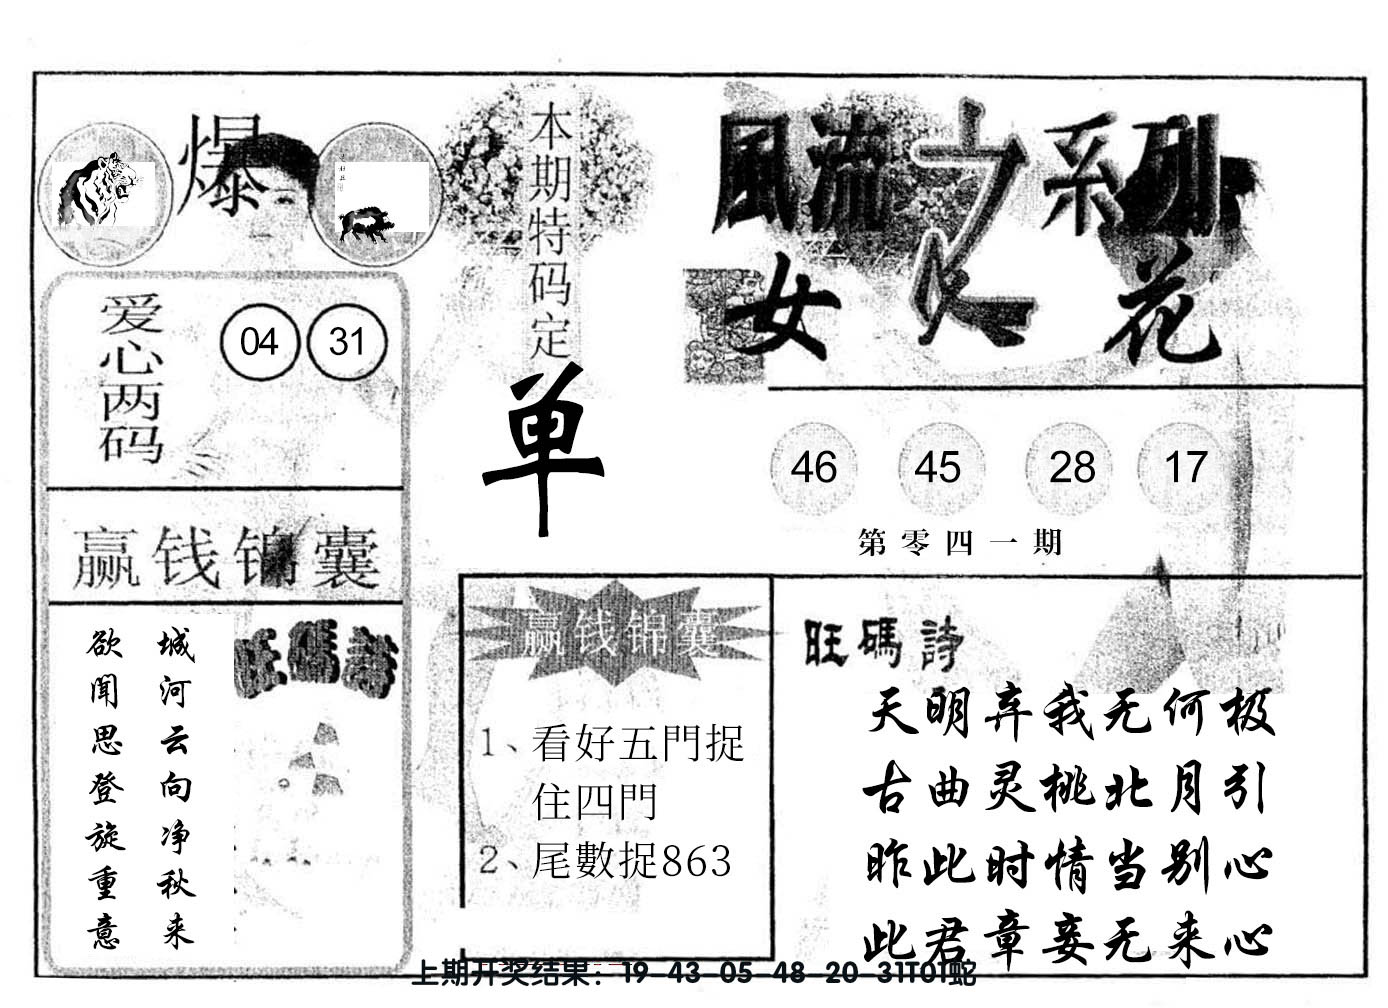 爆
爱心两码
04 31
赢钱锦囊
城河云向净秋来
欲闻思登旋重意
旺碼詩
本期特码定
单
風流之系列
女人花
46 45 28 17
第零四一期
赢钱锦囊
1、看好五門捉
住四門
2、尾數捉863
旺碼詩
天明弃我无何极
古曲灵桃北月引
昨此时情当别心
此君章妾无来心
上期开奖结果：19-43-05-48-20-31T01蛇